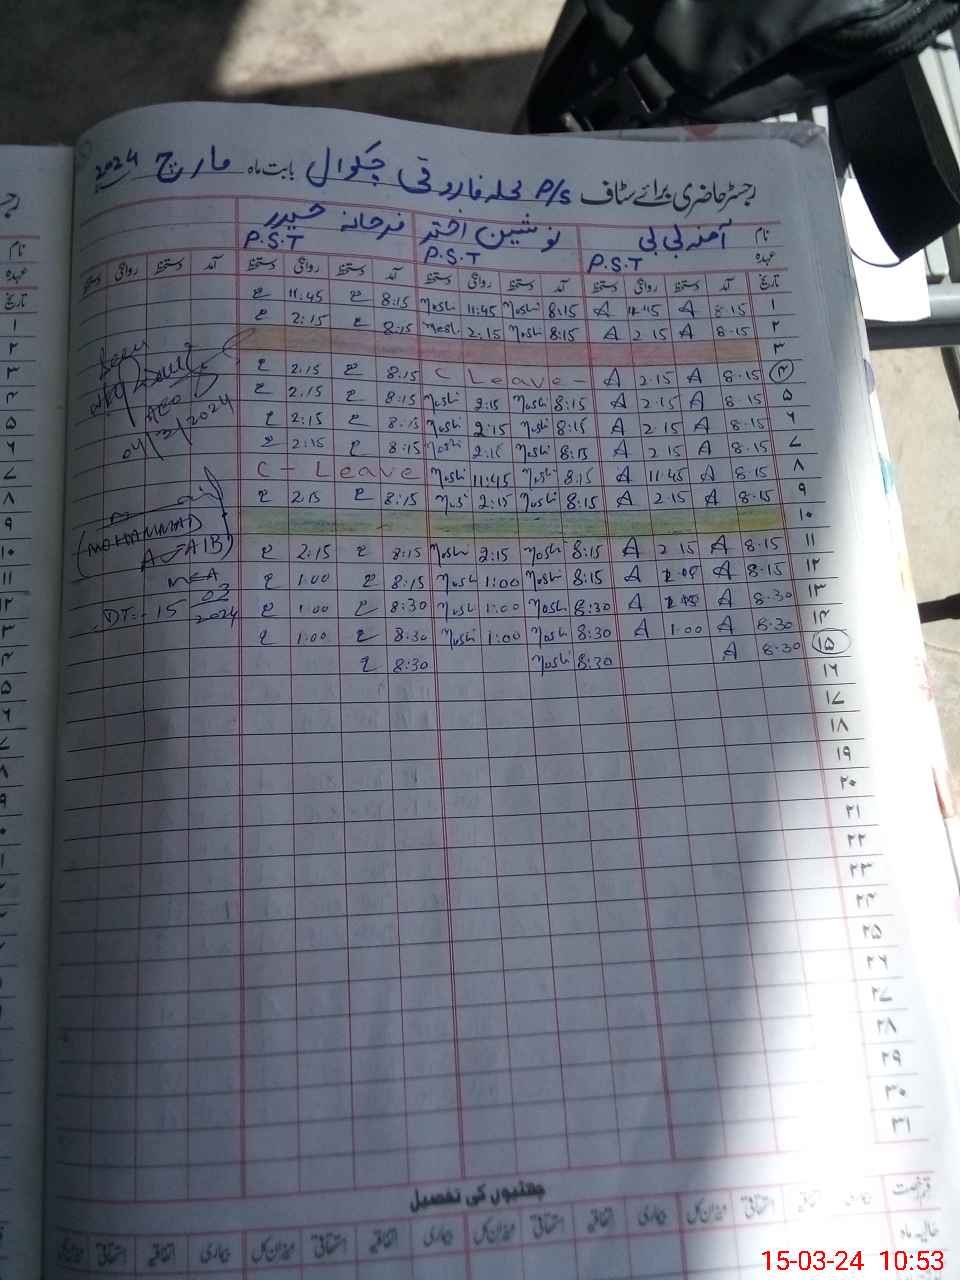 رجسٹر حاضری برائے سٹاف P/S محلہ فاروقی چکوال بابت ماہ مارچ 2024
نام آمنہ بی بی نوشین اختر فرحانہ حیدر
عہدہ P.S.T P.S.T P.S.T
تاریخ آمد دستخط روانگی دستخط آمد دستخط روانگی دستخط آمد دستخط روانگی دستخط آمد دستخط روانگی دستخط
۱ 8.15 A 11.45 A 8:15 Noshi 11:45 Noshi 8:15 11.45
۲ 8.15 A 2.15 A 8:15 Noshi 2.15 Noshi 8:15 2:15
۳
۴ 8.15 A 2.15 A C Leave - 8:15 2:15
۵ 8.15 A 2.15 A 8:15 Noshi 2:15 Noshi 8:15 2:15
۶ 8.15 A 2.15 A 8:15 Noshi 2:15 Noshi 8:15 2:15
۷ 8.15 A 2.15 A 8:15 Noshi 2:15 Noshi 8:15 2:15
۸ 8.15 A 11.45 A 8:15 Noshi 11:45 Noshi C - Leave
۹ 8.15 A 2.15 A 8:15 Noshi 2:15 Noshi 8:15 2:15
۱۰
۱۱ 8.15 A 2.15 A 8:15 Noshi 2:15 Noshi 8:15 2:15
۱۲ 8.15 A A 8:15 Noshi 1:00 Noshi 8:15 1:00
۱۳ 8.30 A A 8:30 Noshi 1:00 Noshi 8:30 1:00
۱۴ 8:30 A 1.00 A 8:30 Noshi 1:00 Noshi 8:30 1:00
۱۵ 8:30 A 8:30 Noshi 8:30
۱۶
۱۷
۱۸
۱۹
۲۰
۲۱
۲۲
۲۳
۲۴
۲۵
۲۶
۲۷
۲۸
۲۹
۳۰
۳۱
AEO
04/3/2024
MOHAMMAD
MEA
DT:- 15 03 2024
چھٹیوں کی تفصیل
قسم رخصت بیماری اتفاقیہ استحقاقی میزان کل بیماری اتفاقیہ استحقاقی میزان کل بیماری اتفاقیہ استحقاقی میزان کل بیماری اتفاقیہ استحقاقی میزان کل
حالیہ ماہ
15-03-24 10:53